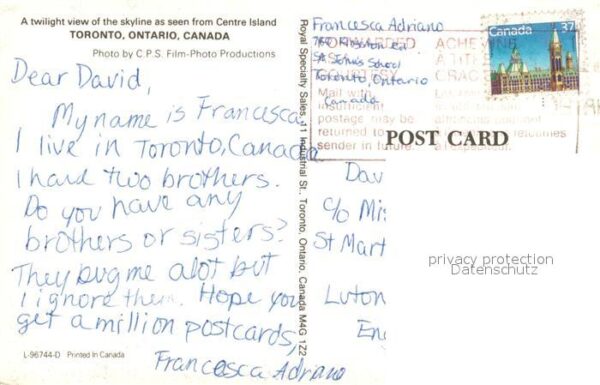 A twilight view of the skyline as seen from Centre Island
TORONTO, ONTARIO, CANADA
Photo by C.P.S. Film-Photo Productions
Dear David,
My name is Francesca
I live in Toronto, Canada
I had two brothers.
Do you have any
brothers or sisters?
They bug me alot but
I ignore them. Hope you
get a million postcards,
Francesca Adriano
L-96744-D Printed in Canada
Royal Specialty Sales, 11 Industrial St., Toronto, Ontario, Canada M4G 1Z2
Francesca Adriano
Kingston Rd
St John's School
Toronto, Ontario
Canada
Mail with
insufficient
postage may be
returned to
sender in future
Canada 37
POST CARD
Dav
c/o Mis
St Mart
Luton
En
privacy protection
Datenschutz